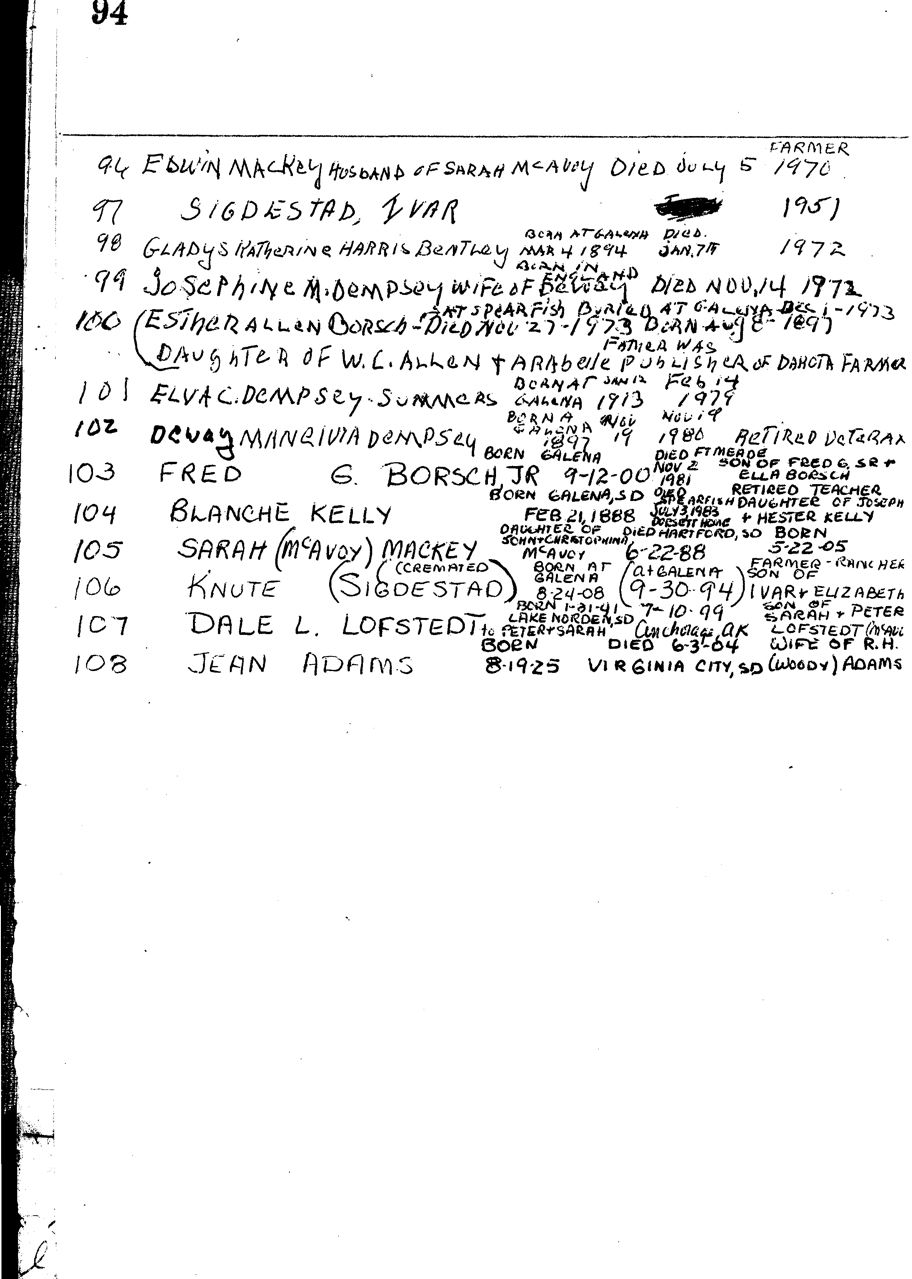 94
FARMER
96 EDWIN MACKEY HUSBAND OF SARAH McAVOY DIED JULY 5 1970
97 SIGDESTAD, IVAR 1951
BORN AT GALENA DIED.
98 GLADYS KATHERINE HARRIS BENTLEY MAR 4 1894 JAN. 7 1972
BORN IN ENGLAND
99 JOSEPHINE M. DEMPSEY WIFE OF DEVVEY DIED NOV, 14 1972
AT SPEARFISH BURIED AT GALENA DEC 1-1973
100 (ESTHER ALLEN BORSCH-DIED NOV 27-1973 BORN AUG 8-1897
FATHER WAS
DAUGHTER OF W.C. ALLEN + ARABELLE PUBLISHER OF DAKOTA FARMER
BORN AT JAN 12 FEB 14
101 ELVA C. DEMPSEY-SUMMERS GALENA 1913 1979
BORN A NOV NOV 19
102 DEWAY DEMPSEY GALENA 1897 19 1980 RETIRED VETERAN
BORN GALENA DIED FT MEADE SON OF FRED G. SR +
103 FRED G. BORSCH, JR 9-12-00 NOV 2 1981 ELLA BORSCH
BORN GALENA, SD DIED SPEARFISH RETIRED TEACHER DAUGHTER OF JOSEPH
104 BLANCHE KELLY FEB 21, 1888 JULY 3, 1983 DORSETT HOME + HESTER KELLY
DAUGHTER OF JOHN + CHRISTOPHINA DIED HARTFORD, SD BORN
105 SARAH (McAVOY) MACKEY McAVOY 6-22-88 5-22-05
(CREMATED) BORN AT GALENA (at GALENA FARMER-RANCHER SON OF
106 KNUTE (SIGDESTAD) 8-24-08 9-30-94) IVAR + ELIZABETH
BORN 1-21-41 LAKE NORDEN, SD 7-10-99 SON OF SARAH + PETER
107 DALE L. LOFSTEDT to PETER + SARAH Anchorage, AK LOFSTEDT
BORN DIED 6-3-04 WIFE OF R.H.
108 JEAN ADAMS 8-19-25 VIRGINIA CITY, SD (WOODY) ADAMS